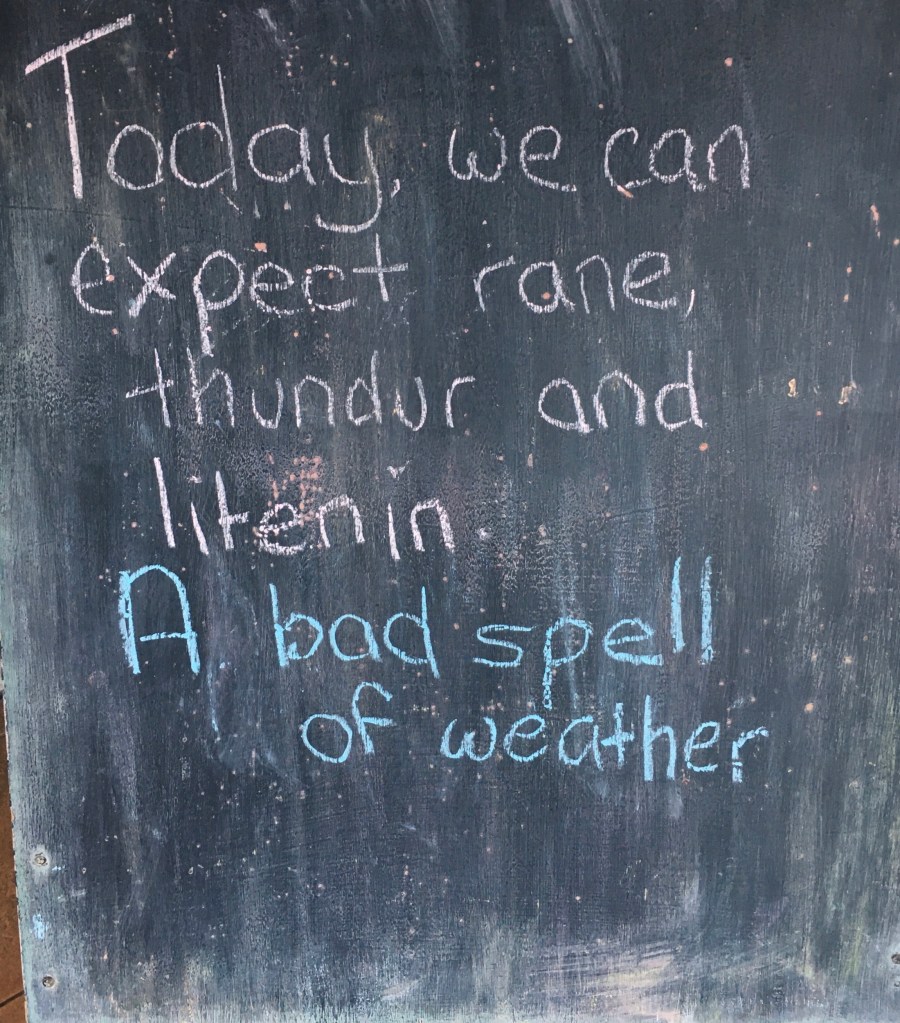 Today, we can
expect rane,
thundur and
litenin.
A bad spell
of weather